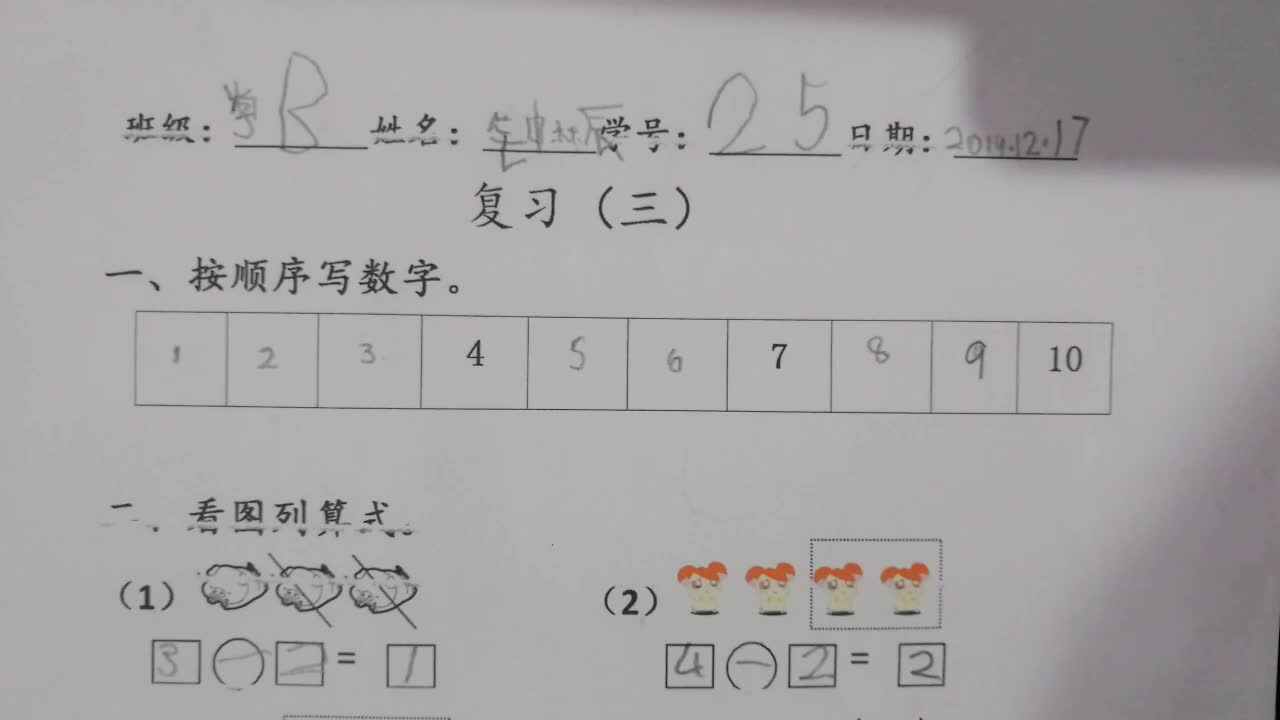 班级：学B 姓名： 学号：25 日期：2019.12.17
复习（三）
一、按顺序写数字。
1 2 3 4 5 6 7 8 9 10
二、看图列算式。
（1） （2）
3－2＝1 4－2＝2